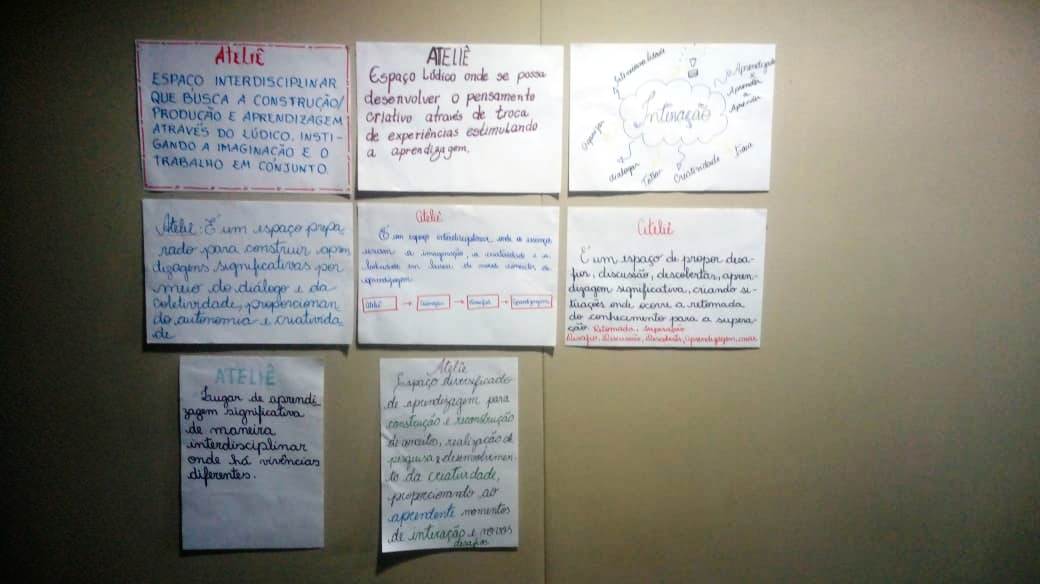 ATELIÊ
ESPAÇO INTERDISCIPLINAR
QUE BUSCA A CONSTRUÇÃO/
PRODUÇÃO E APRENDIZAGEM
ATRAVÉS DO LÚDICO, INSTI-
GANDO A IMAGINAÇÃO E O
TRABALHO EM CONJUNTO.
ATELIÊ
Espaço Lúdico onde se possa
desenvolver o pensamento
criativo através de troca
de experiências estimulando
a aprendizagem.
Interação
Aprendizado
Aprender
a
Aprender
dialogar
Criatividade
Troca
Ateliê: É um espaço prepa-
rado para construir apren
dizagens significativas por
meio do diálogo e da
coletividade, proporcionan
do autonomia e criativida
de
Ateliê
É um espaço interdisciplinar onde as crianças
usam a imaginação, a criatividade e a
em busca de
aprendizagem.
Ateliê → → Desafio → Aprendizagem
Ateliê
É um espaço de propor desa-
fios, discussão, descobertas, apren-
dizagem significativa, criando si-
tuações onde ocorre a retomada
do conhecimento para a supera-
ção. Retomada, superação
Desafio, Discussão, Descoberta, aprendizagem, criar
ATELIÊ
Lugar de aprendi-
zagem significativa
de maneira
interdisciplinar
onde há vivências
diferentes.
Ateliê
Espaço diversificado
de aprendizagem para
construção e reconstrução
de conceitos, realização de
pesquisa e desenvolvimen-
to da criatividade,
proporcionando ao
aprendente momentos
de interação e novos
desafios